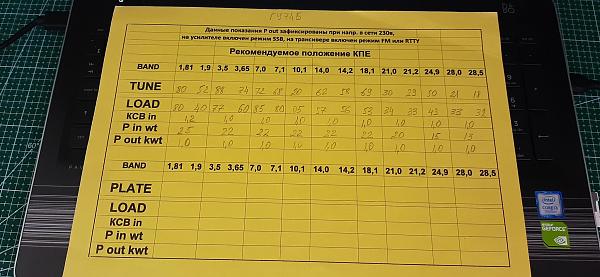 ГУ74Б
Данные показания P out зафиксированы при напр. в сети 230в,
на усилителе включен режим SSB, на трансивере включен режим FM или RTTY
Рекомендуемое положение КПЕ
BAND 1,81 1,9 3,5 3,65 7,0 7,1 10,1 14,0 14,2 18,1 21,0 21,2 24,9 28,0 28,5
TUNE 80 52 88 74 72 68 20 62 58 69 30 29 50 21 18
LOAD 80 40 77 60 85 80 57 56 53 34 33 43 33 32
КСВ in 1,2 1,0 1,0 1,0 1,0 1,0 1,0 1,0
P in wt 25 22 22 22 22 20 15 13
P out kwt 1,0 1,0 1,0 1,0 1,0 1,0 1,0 1,0
BAND 1,81 1,9 3,5 3,65 7,0 7,1 10,1 14,0 14,2 18,1 21,0 21,2 24,9 28,0 28,5
PLATE
LOAD
КСВ in
P in wt
P out kwt
intel
CORE i3
GEFORCE